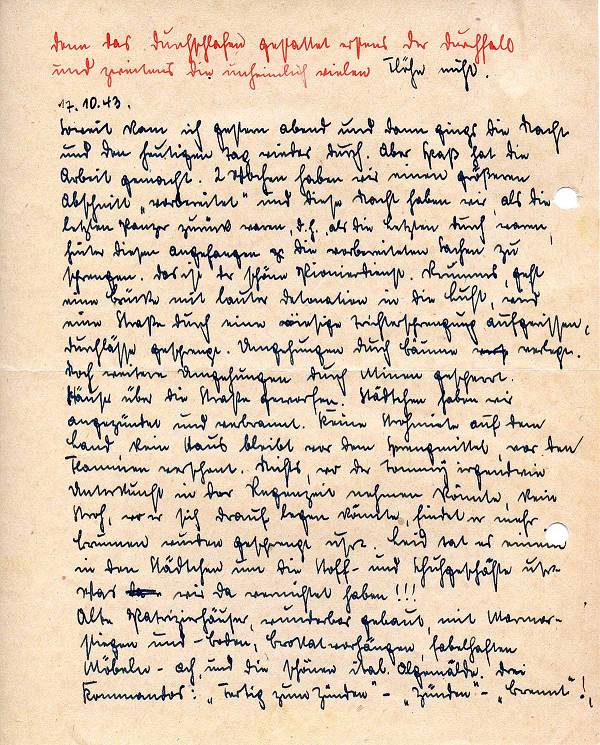 denn das Durchschlafen gestattet erstens der Durchfall
und zweitens die unheimlich vielen Flöhe nicht.
17.10.43.
Soweit kam ich gestern abend und dann gings die Nacht
und den heutigen Tag wieder durch. Aber Spaß hat die
Arbeit gemacht. 2 Wochen haben wir einen größeren
Abschnitt „vorbereitet" und diese Nacht haben wir, als die
letzten Panzer zurück waren, d.h. als die letzten durch waren,
hinter diesen angefangen die vorbereiteten Sachen zu
sprengen. Das ist der schöne Pionierdienst. Krumms, geht
eine Brücke mit lauter Detonation in die Luft, wird
eine Straße durch eine riesige Trichtersprengung aufgerissen,
Durchlässe gesprengt. Umgehungen durch Bäume verlegt.
Doch weitere Umgehungen durch Minen gesperrt.
Häuser über die Straße geworfen. Städtchen haben wir
angezündet und verbrannt. Keine Strohmiete auf dem
Land, kein Haus bleibt vor dem Sprengmittel, vor den
Flammen verschont. Nichts, wo der Tommy irgendwie
Unterkunft in der Regenzeit nehmen könnte, kein
Stroh, wo er sich drauf legen könnte, findet er mehr.
Brunnen wurden gesprengt usw. Leid tat es einem
in den Städtchen um die Stoff- und Schuhgeschäfte usw
was wir da vernichtet haben!!!
Alte Patrizierhäuser, wunderbar gebaut, mit Marmor-
stiegen und -boden, Brokatvorhängen, fabelhaften
Möbeln - ach, und die schönen ital. Ölgemälde. Drei
Kommandos: „Fertig zum Zünden" - „Zünden" - „Brennt"!,